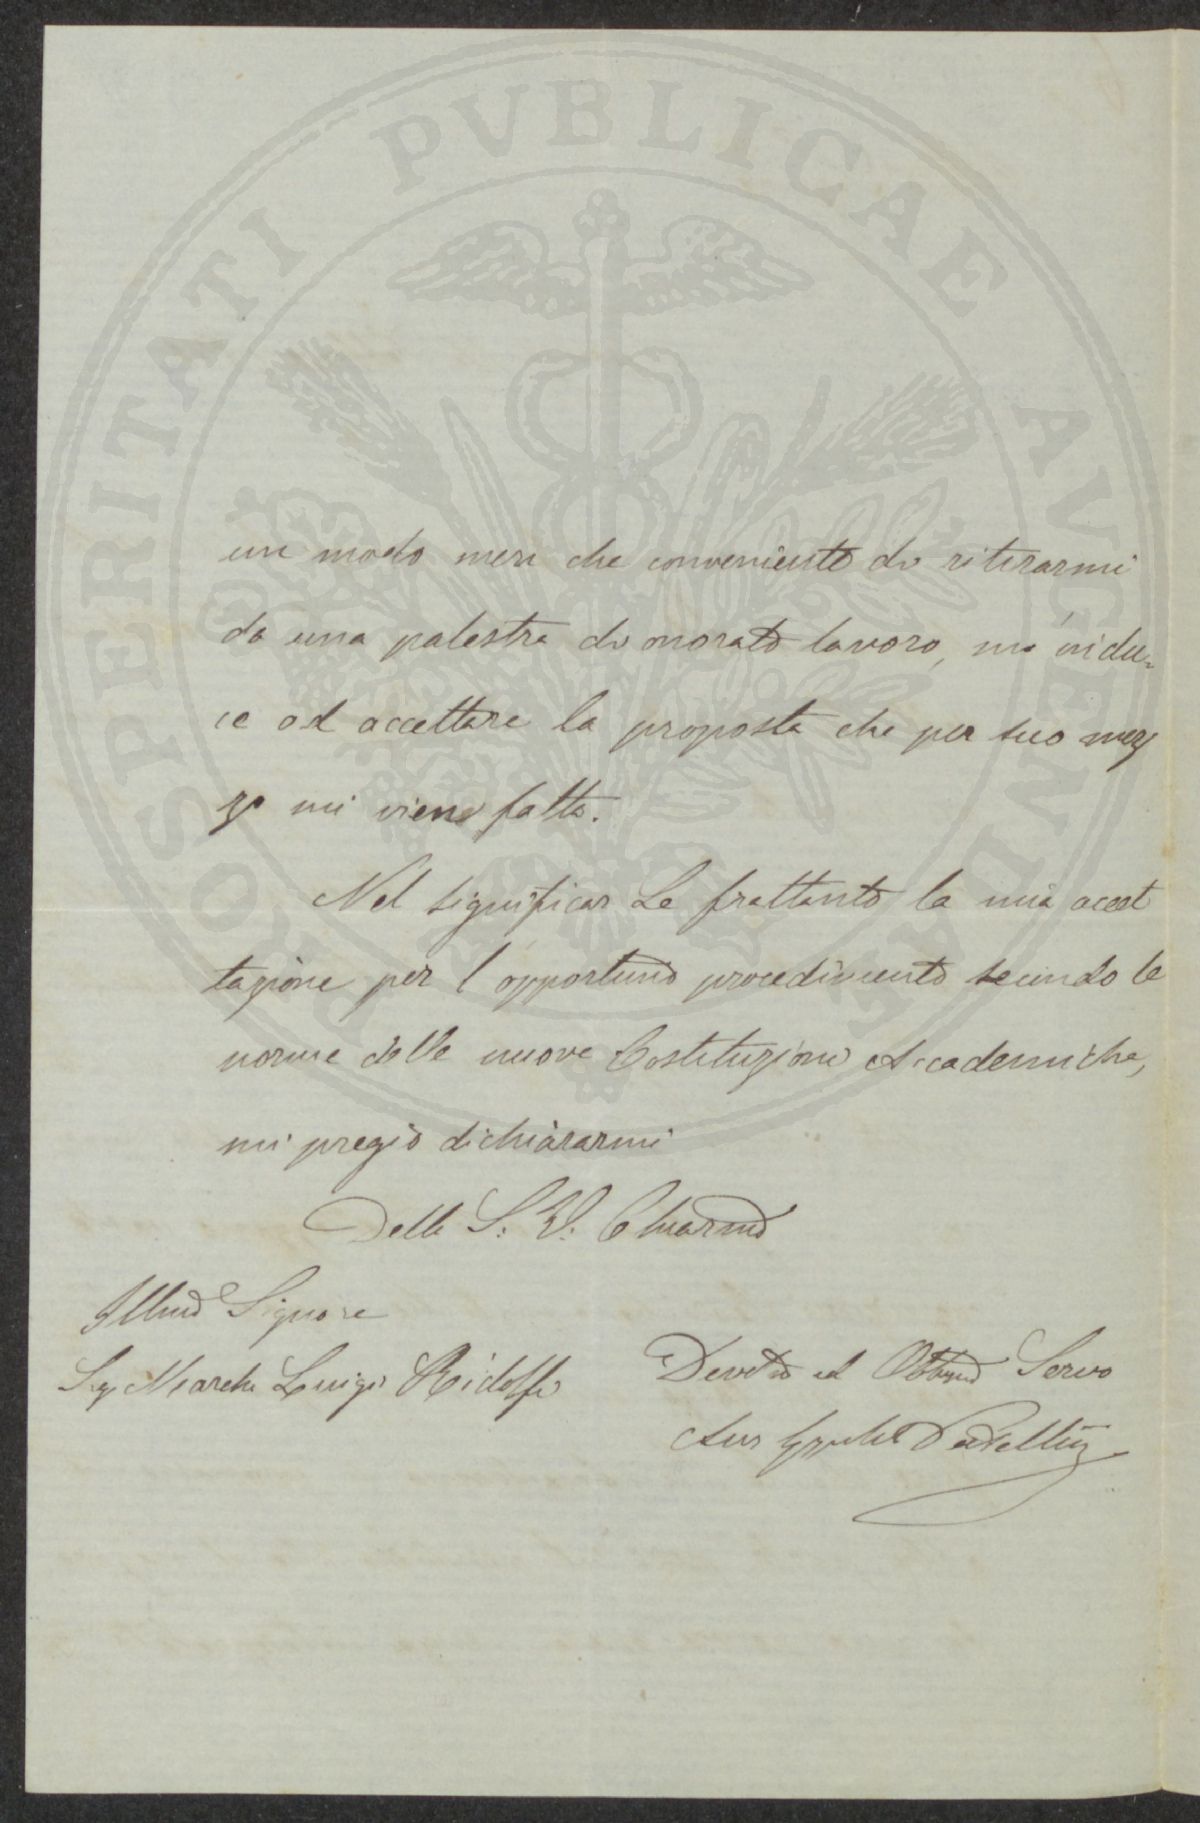 PROSPERITATI PVBLICAE AVGENDAE
un modo men che conveniente di ritirarmi
da una palestra di onorato lavoro, mi indu-
ce ad accettare la proposta che per suo mez
zo mi viene fatta.
Nel significar Le frattanto la mia accet
tazione per l opportuno procedimento secondo le
norme delle nuove Costituzioni Accademiche,
mi pregio dichiararmi
Della S. V. Chiarma
Illmo Signore
Sig Marche Luigi Ridolfi
Devoto ed Obbmo Servo